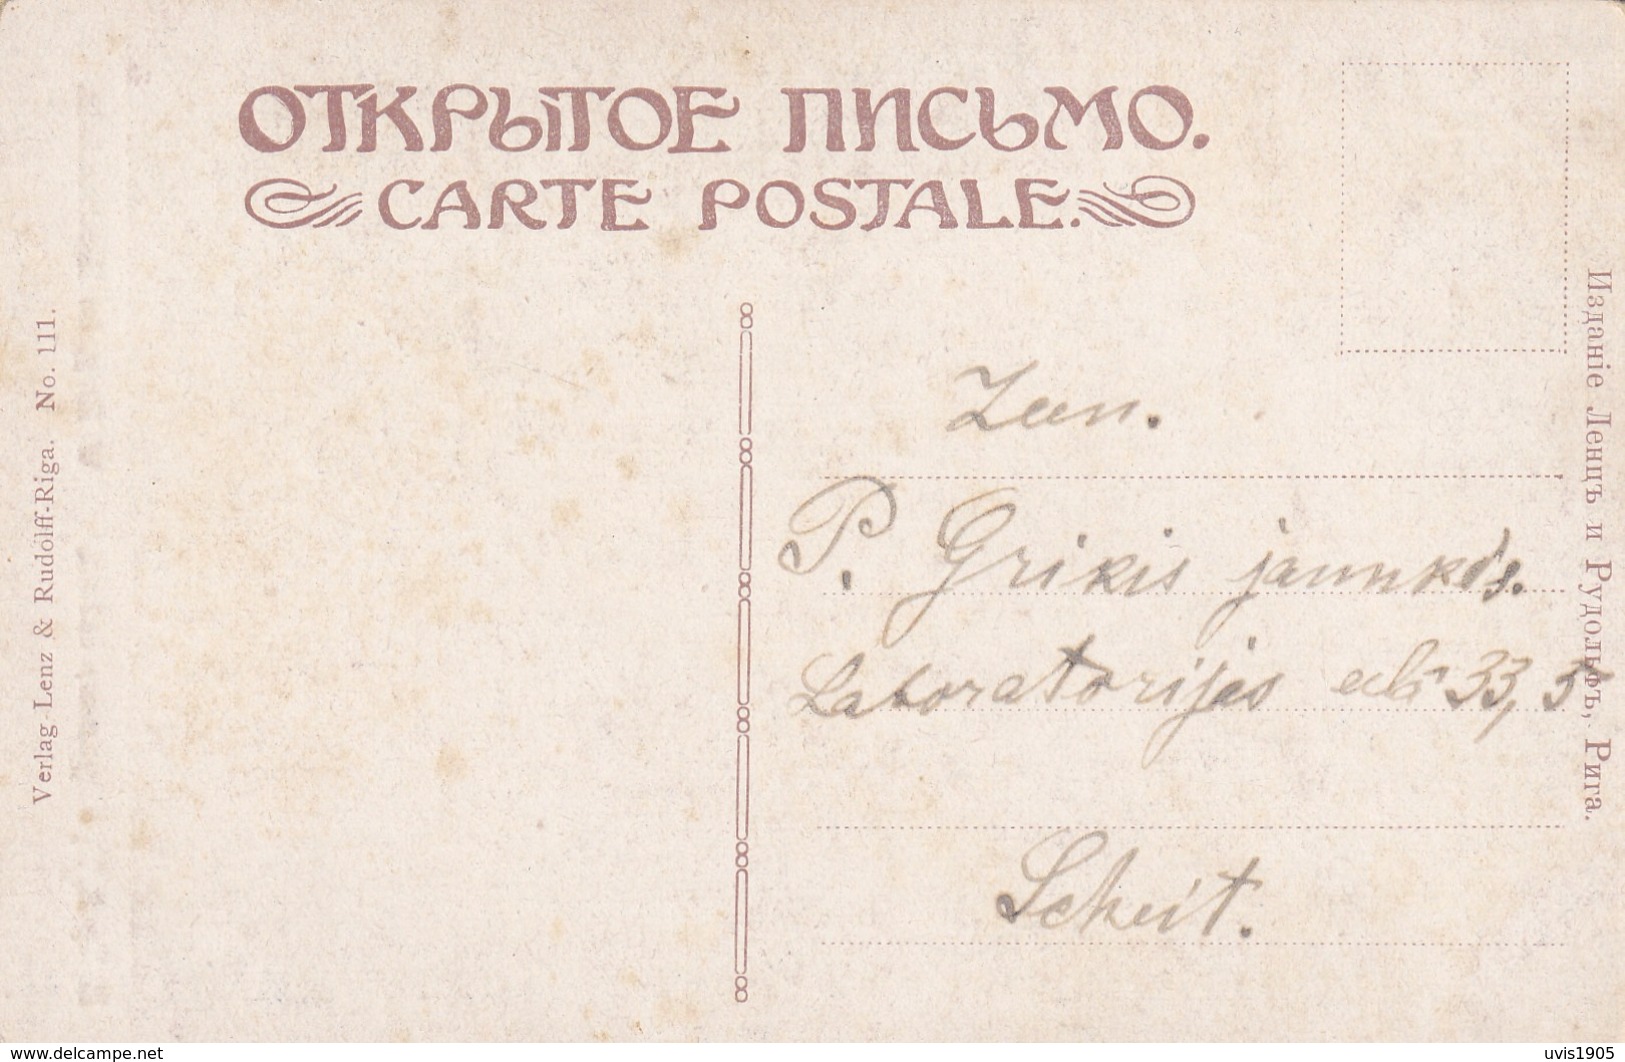 ОТКРЫТОЕ ПИСЬМО.
CARTE POSTALE.
Verlag Lenz & Rudolff-Riga. No. 111.
Изданіе Ленцъ и Рудольфъ, Рига.
Zen.
P. Grikis jaunkds.
Laboratorijas 33, 5
Scheit.
www.delcampe.net
uvis1905